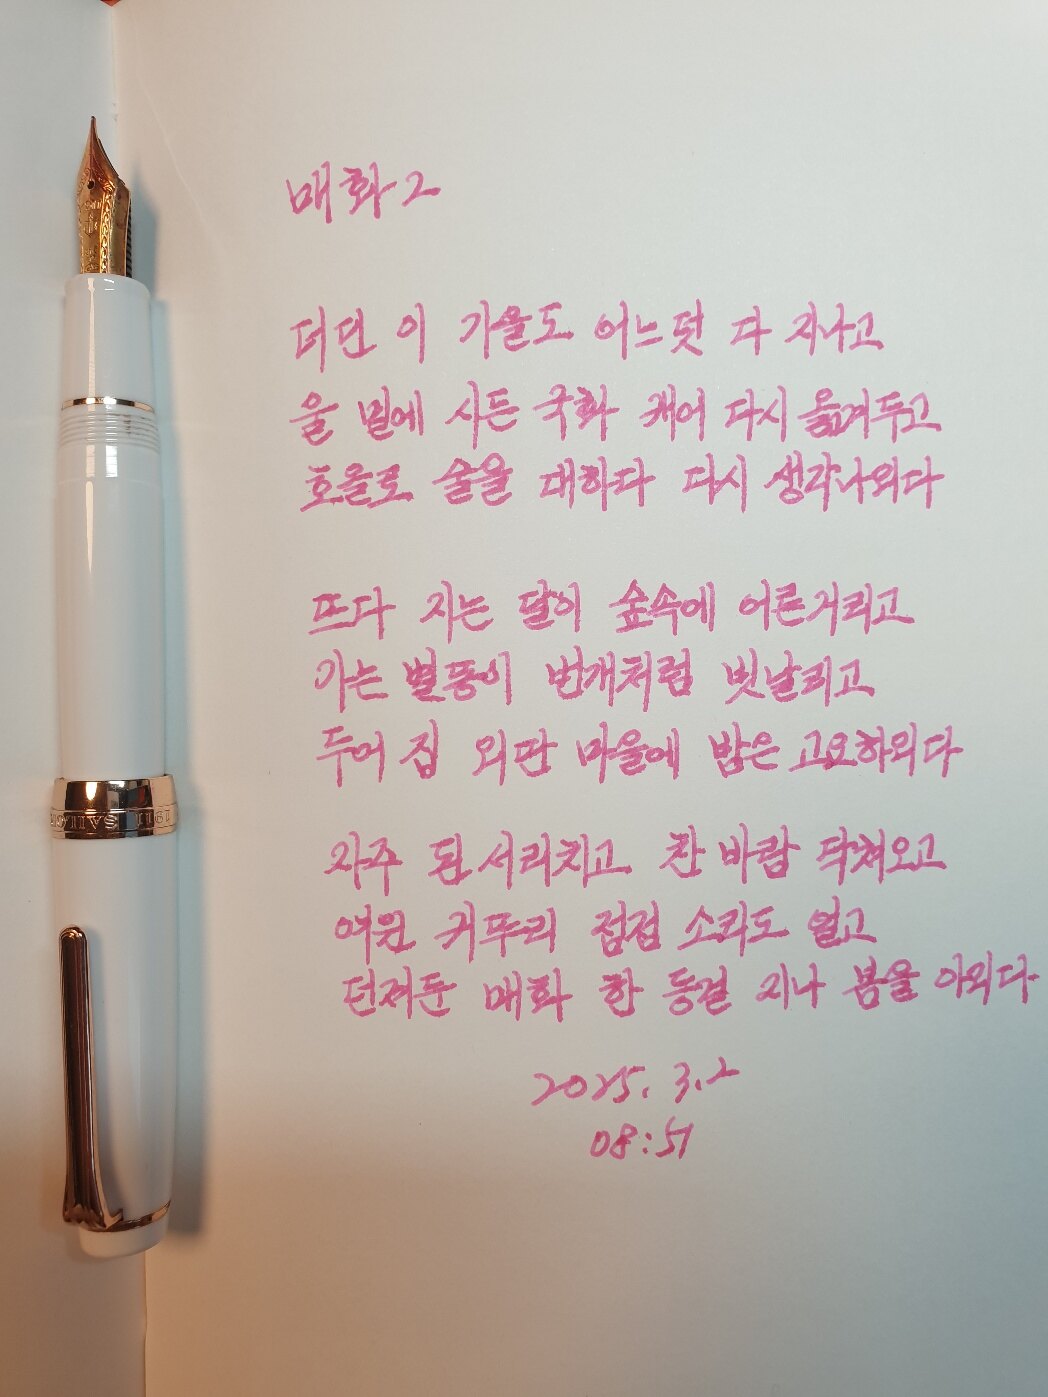 매화 2
더딘 이 가을도 어느덧 다 지나고
울 밑에 시든 국화 캐어 다시 옮겨두고
호올로 술을 대하다 다시 생각나외다
뜨다 지는 달이 숲속에 어른거리고
가는 별똥이 번개처럼 빗날리고
두어 집 외딴 마을에 밤은 고요하외다
자주 된서리치고 찬 바람 닥쳐오고
여윈 귀뚜리 점점 소리도 얼고
던져둔 매화 한 등걸 지나 봄을 아외다
2025. 3. 2
08:51
1911 SAILOR